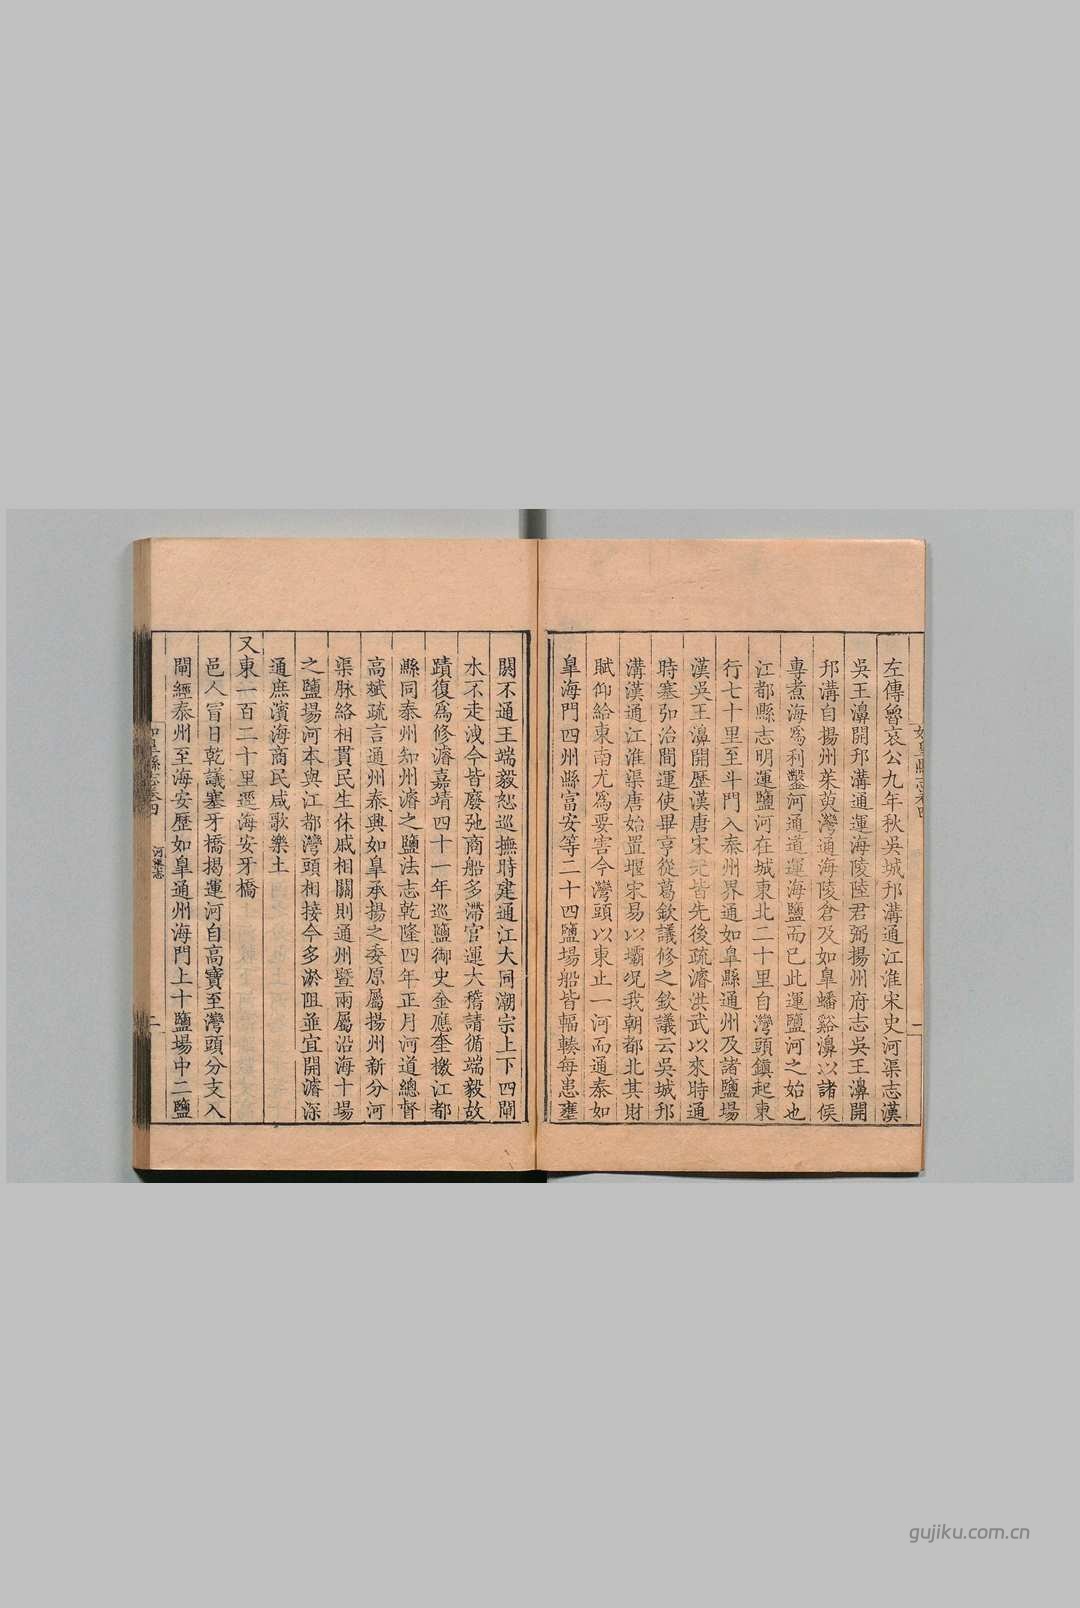 左傳魯哀公九年秋吳城邗溝通江淮宋史河渠志漢
吳王濞開邗溝通運海陵陸君弼揚州府志吳王濞開
邗溝自揚州茱萸灣通海陵倉及如皐蟠谿濞以諸侯
專煮海爲利鑿河通道運海鹽而已此運鹽河之始也
江都縣志明運鹽河在城東北二十里自灣頭鎮起東
行七十里至斗門入泰州界通如皐縣通州及諸鹽場
漢吳王濞開歷漢唐宋元皆先後疏濬洪武以來時通
時塞弘治間運使畢亨從葛欽議修之欽議云吳城邗
溝漢通江淮渠唐始置堰宋易以壩況我朝都北其財
賦仰給東南尤爲要害今灣頭以東止一河而通泰如
皐海門四州縣富安等二十四鹽場船皆輻輳每患壅
閼不通王端毅恕巡撫時建通江大同潮宗上下四閘
水不走洩今皆廢弛商船多滯官運大稽請循端毅故
蹟復爲修濬嘉靖四十一年巡鹽御史金應奎檄江都
縣同泰州知州濬之鹽法志乾隆四年正月河道總督
高斌疏言通州泰興如皐承揚之委原屬揚州新分河
渠脉絡相貫民生休戚相關則通州暨兩屬沿海十場
之鹽場河本與江都灣頭相接今多淤阻並宜開濬深
通庶濱海商民咸歌樂土
又東一百二十里逕海安牙橋
邑人冒日乾議塞牙橋揭運河自高寶至灣頭分支入
閘經泰州至海安歷如皐通州海門上十鹽場中二鹽
如皐縣志卷四
河渠志
二
gujiku.com.cn